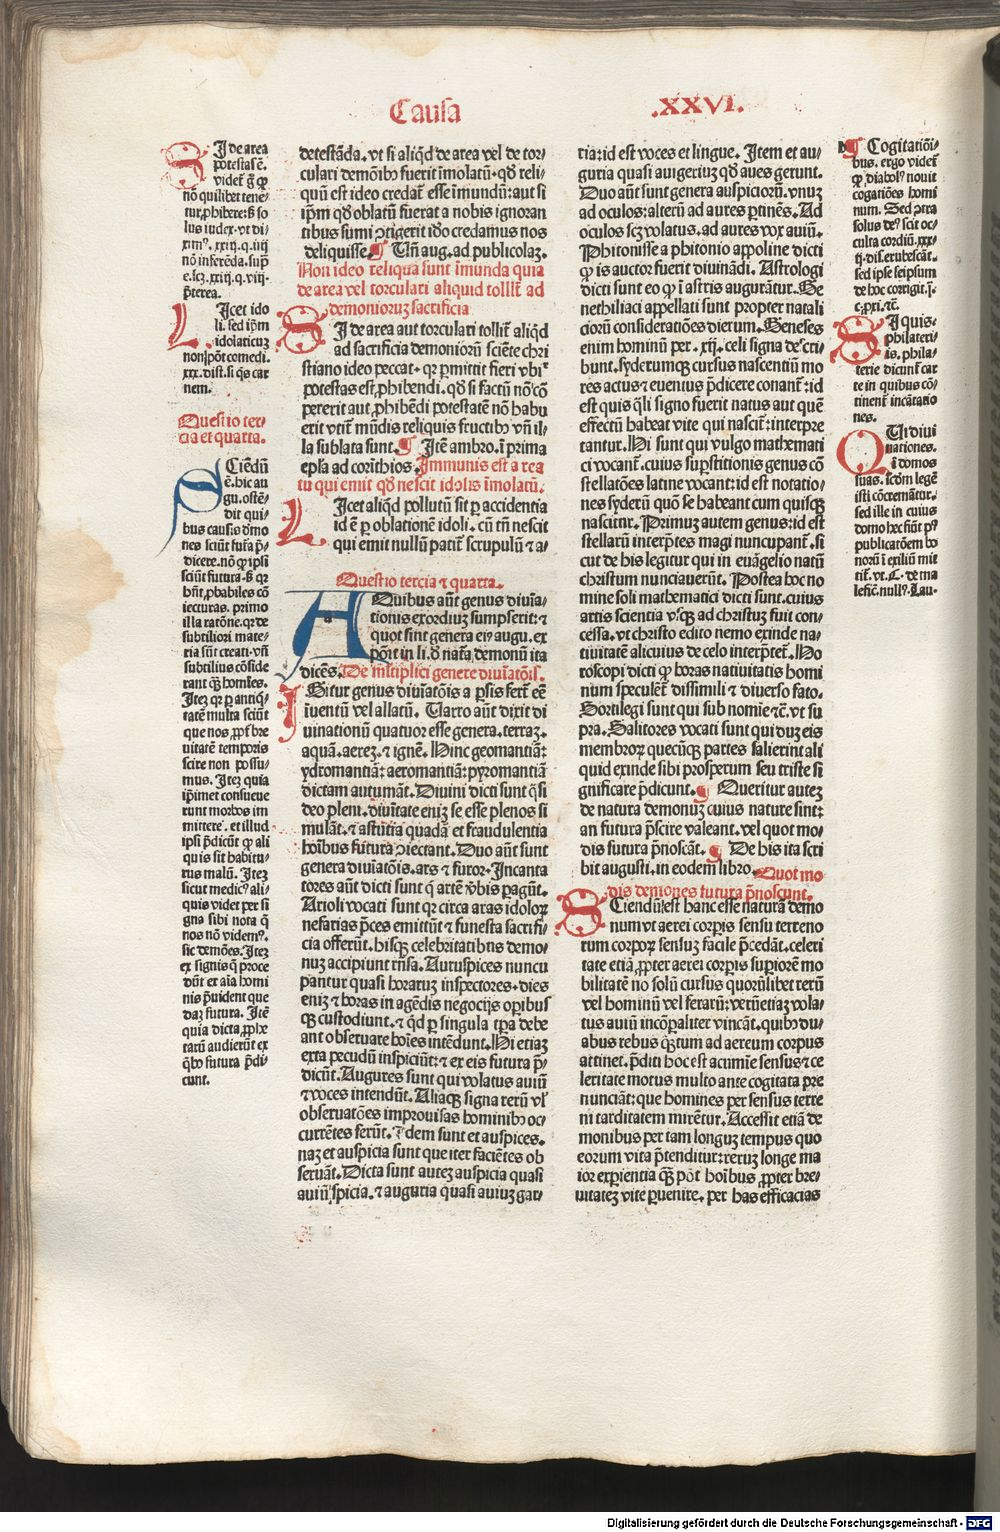 Causa
.XXVI.
SI de area
potestas ē.
videt̄ ḡ ꝙ
nō quilibet tene⸗
tur ꝓhibere: ß so
lus iudex. vt di⸗
xim⁹. xxiij. q. iiij
nō inferēda. sup̄
e. scꝫ. xxiij. q. viij.
p̄terea.
LIcet ido
li. sed ip̄m
idolaticuꝫ
non pōt comedi.
xxx. dist. si q̄s car
nem.
Questio ter⸗
cia et quarta.
SCiendū
ē. hic au
gu. ostē⸗
dit qui⸗
bus causis dēmo
nes sciūt futura p̄⸗
dicere. nō ꝙ ipsi
sciūt futura. ß qꝛ
hn̄t ꝓbabiles cō
iecturas. primo
illa ratōne. qꝛ de
subtiliori mate⸗
ria sūt creati. vn̄
subtilius cōside
rant qꝫ hoīnes.
Iteꝫ qꝛ p̱ antiq⸗
tatē multa sciūt
que nos ꝓpt̄ bre
uitatē temporis
scire non possu⸗
mus. Iteꝫ quia
ip̄imet consueue
runt morbos im
mittere. et illud
ipsi p̄dicūt ꝙ ali
quis sit habitu⸗
rus malū. Iteꝫ
sicut medic⁹ ali⸗
quis videt per si
gna sibi nota q̄
nos nō videm⁹.
sic demōes. Iteꝫ
ex signis q̄ proce
dūt ex aīa homi
nis p̄uident que
daꝫ futura. Itē
quia dicta ꝓphe
tarū audierūt ex
qbꝫ futura p̄di⸗
cunt.
detestāda. vt si aliqd de area vel de tor⸗
culari demōibꝫ fuerit īmolatū. qd reli⸗
quū est ideo credat̄ esse īmundū: aut si
ip̄m qd oblatū fuerat a nobis ignoran
tibus sumi ↄtigerit idō credamus nos
deliquisse. ¶ Un̄ aug. ad publicolaꝫ.
Non ideo reliqua sunt īmunda quia
de area vel torculari aliquid tollit̄ ad
demonioruꝫ sacrificia
SI de area aut torculari tollit̄ aliqd
ad sacrificia demoniorū sciēte chri
stiano ideo peccat. qꝛ ꝑmittit fieri vbi
potestas est ꝓhibendi. qd si factū nō cō
pererit aut ꝓhibēdi potestatē nō habu
erit vtit̄ mūdis reliquis fructibꝫ vn̄ il⸗
la sublata sunt. ¶ Itē ambro. ī prima
epl̄a ad corīthios. Immunis est a rea
tu qui emit qd nescit idolis īmolatū.
LIcet aliqd pollutū sit ꝑ accidentia
id ē ꝑ oblationē idoli. cū tn̄ nescit
qui emit nullū patit̄ scrupulū ⁊ a⸗
Questio tercia ⁊ quarta.
AQuibus aūt genus diuīa⸗
tionis exordiuꝫ sumpserit: ⁊
quot sint genera eiꝰ augu. ex
pōit in li. d̄ nat̄a demonū ita
dicēs. De ml̄tiplici genere diuīatōis.
IGitur genus diuīatōis a ꝑsis fert̄ eē
iuentū vel allatū. Uarro aūt dixit di
uinationū quatuor esse genera. terraꝫ.
aquā. aereꝫ. ⁊ ignē. Hinc geomantiā:
ydromantiā: aeromantiā: pyromantiā
dictam autumāt. Diuini dicti sunt q̄si
deo pleni. diuītate eniꝫ se esse plenos si
mulāt. ⁊ astutia quadā et fraudulentia
hoībus futura ↄiectant. Duo aūt sunt
genera diuīatōis. ars ⁊ furor. Incanta
tores aūt dicti sunt q̄ artē v̄bis ꝑagūt.
Arioli vocati sunt qꝛ circa aras idoloꝝ
nefarias p̄ces emittūt ⁊ funesta sacrifi⸗
cia offerūt. hisqꝫ celebritatibus demo⸗
nuꝫ accipiunt rn̄sa. Auruspices nuncu
pantur quasi horaruꝫ inspectores. dies
eniꝫ ⁊ horas in agēdis negocijs opibus
qꝫ custodiunt. ⁊ qd ꝑ singula tꝑa debe
ant obseruare hoīes intēdunt. Hi etiaꝫ
exta pecudū inspiciūt: ⁊ ex eis futura p̄⸗
dicūt. Augures sunt qui volatus auiū
⁊ voces intendūt. Aliaqꝫ signa rerū vl̓
obseruatōes improuisas hominibꝫ oc⸗
currētes ferūt. Idem sunt et auspices.
naꝫ et auspicia sunt que iter faciētes ob
seruāt. Dicta sunt auteꝫ auspicia quasi
auiū spicia. ⁊ auguria quasi auiuꝫ gar⸗
ria: id est voces et lingue. Item et au⸗
guria quasi auigeriuꝫ qd aues gerunt.
Duo aūt sunt genera auspiciorū. vnuꝫ
ad oculos: alterū ad aures ꝑtinēs. Ad
oculos scꝫ volatus. ad aures vox auiū.
Phitonisse a phitonio appoline dicti
ꝙ is auctor fuerit diuinādi. Astrologi
dicti sunt eo ꝙ ī astris augurātur. Ge
nethiliaci appellati sunt propter natali
ciorū consideratiōes dierum. Geneses
enim hominū per. xij. celi signa descri⸗
bunt. syderumqꝫ cursus nascentiū mo
res actus ⁊ euentus p̄dicere conant̄: id
est quis q̄li signo fuerit natus aut quē
effectū habeat vite qui nascit̄: interpre
tantur. Hi sunt qui vulgo mathemati
ci vocant̄. cuius suꝑstitionis genus cō
stellatōes latine vocant: id est notatio⸗
nes syderū quō se habeant cum quisqꝫ
nascitur. Primuꝫ autem genus: id est
stellarū interp̄tes magi nuncupant̄. si
cut de his legitur qui in euāgelio natū
christum nunciauerūt. Postea hoc no
mine soli mathematici dicti sunt. cuius
artis scientia vsqꝫ ad christuꝫ fuit con⸗
cessa. vt christo edito nemo exinde na⸗
tiuitatē alicuius de celo interp̄tet̄. Ho
roscopi dicti ꝙ horas natiuitatis homi
num speculēt̄ dissimili ⁊ diuerso fato.
Sortilegi sunt qui sub nomīe ⁊c̄. vt su
pra. Salitores vocati sunt qui duꝫ eis
membroꝝ quecūqꝫ partes salierint ali
quid exinde sibi prosperum seu triste si
gnificare p̄dicunt. ¶ Queritur auteꝫ
de natura demonuꝫ cuius nature sint:
an futura p̄scire valeant. vel quot mo⸗
dis futura p̄noscāt. ¶ De his ita scri
bit augusti. in eodem libro. Quot mo
dis demones futura p̄noscunt.
SCiendū est hanc esse naturā demo
num vt aerei corꝑis sensu terreno
rum corpoꝝ sensuꝫ facile p̄cedāt. celeri
tate etiā ꝓpter aerei corꝑis suꝑiorē mo
bilitatē nō solū cursus quorūlibet rerū
vel hominū vel ferarū: verūetiaꝫ vola⸗
tus auiū incōꝑaliter vincāt. quibꝫ du⸗
abus rebus qꝫtum ad aereum corpus
attinet. p̄diti hoc est acumīe sensus ⁊ ce
leritate motus multo ante cogitata pre
nunciāt: que homines per sensus terre
ni tarditatem mirētur. Accessit etiā de
monibus per tam longuꝫ tempus quo
eorum vita p̄tenditur: reruꝫ longe ma
ior exꝑientia qꝫ pōt hoībus ꝓpter bre⸗
uitateꝫ vite ꝑuenire. per has efficacias
¶ Cogitatiōi⸗
bus. ergo videt̄
ꝙ diabol⁹ nouit
cogatiōes homi
num. Sed ↄtra
solus de⁹ scit oc⸗
culta cordiū. xxx⸗
ij. dis. erubescāt.
sed ipse seipsum
de hoc corrigit. j̄.
c. ꝓxi. ⁊c̄.
SI quis.
philateri⸗
is. phila⸗
terie dicunt̄ car
te in quibus cō⸗
tinent̄ incātatio
nes.
QUi diui
nationes.
ī domos
suas. scd̄m legē
isti ↄcremātur.
sed ille in cuius
domo hec fiūt pꝰ
publicatōem bo
norū ī exiliū mit
tit̄. vt. C. de ma
lefic̄. null⁹. Lau.
Digitalisierung gefördert durch die Deutsche Forschungsgemeinschaft - DFG